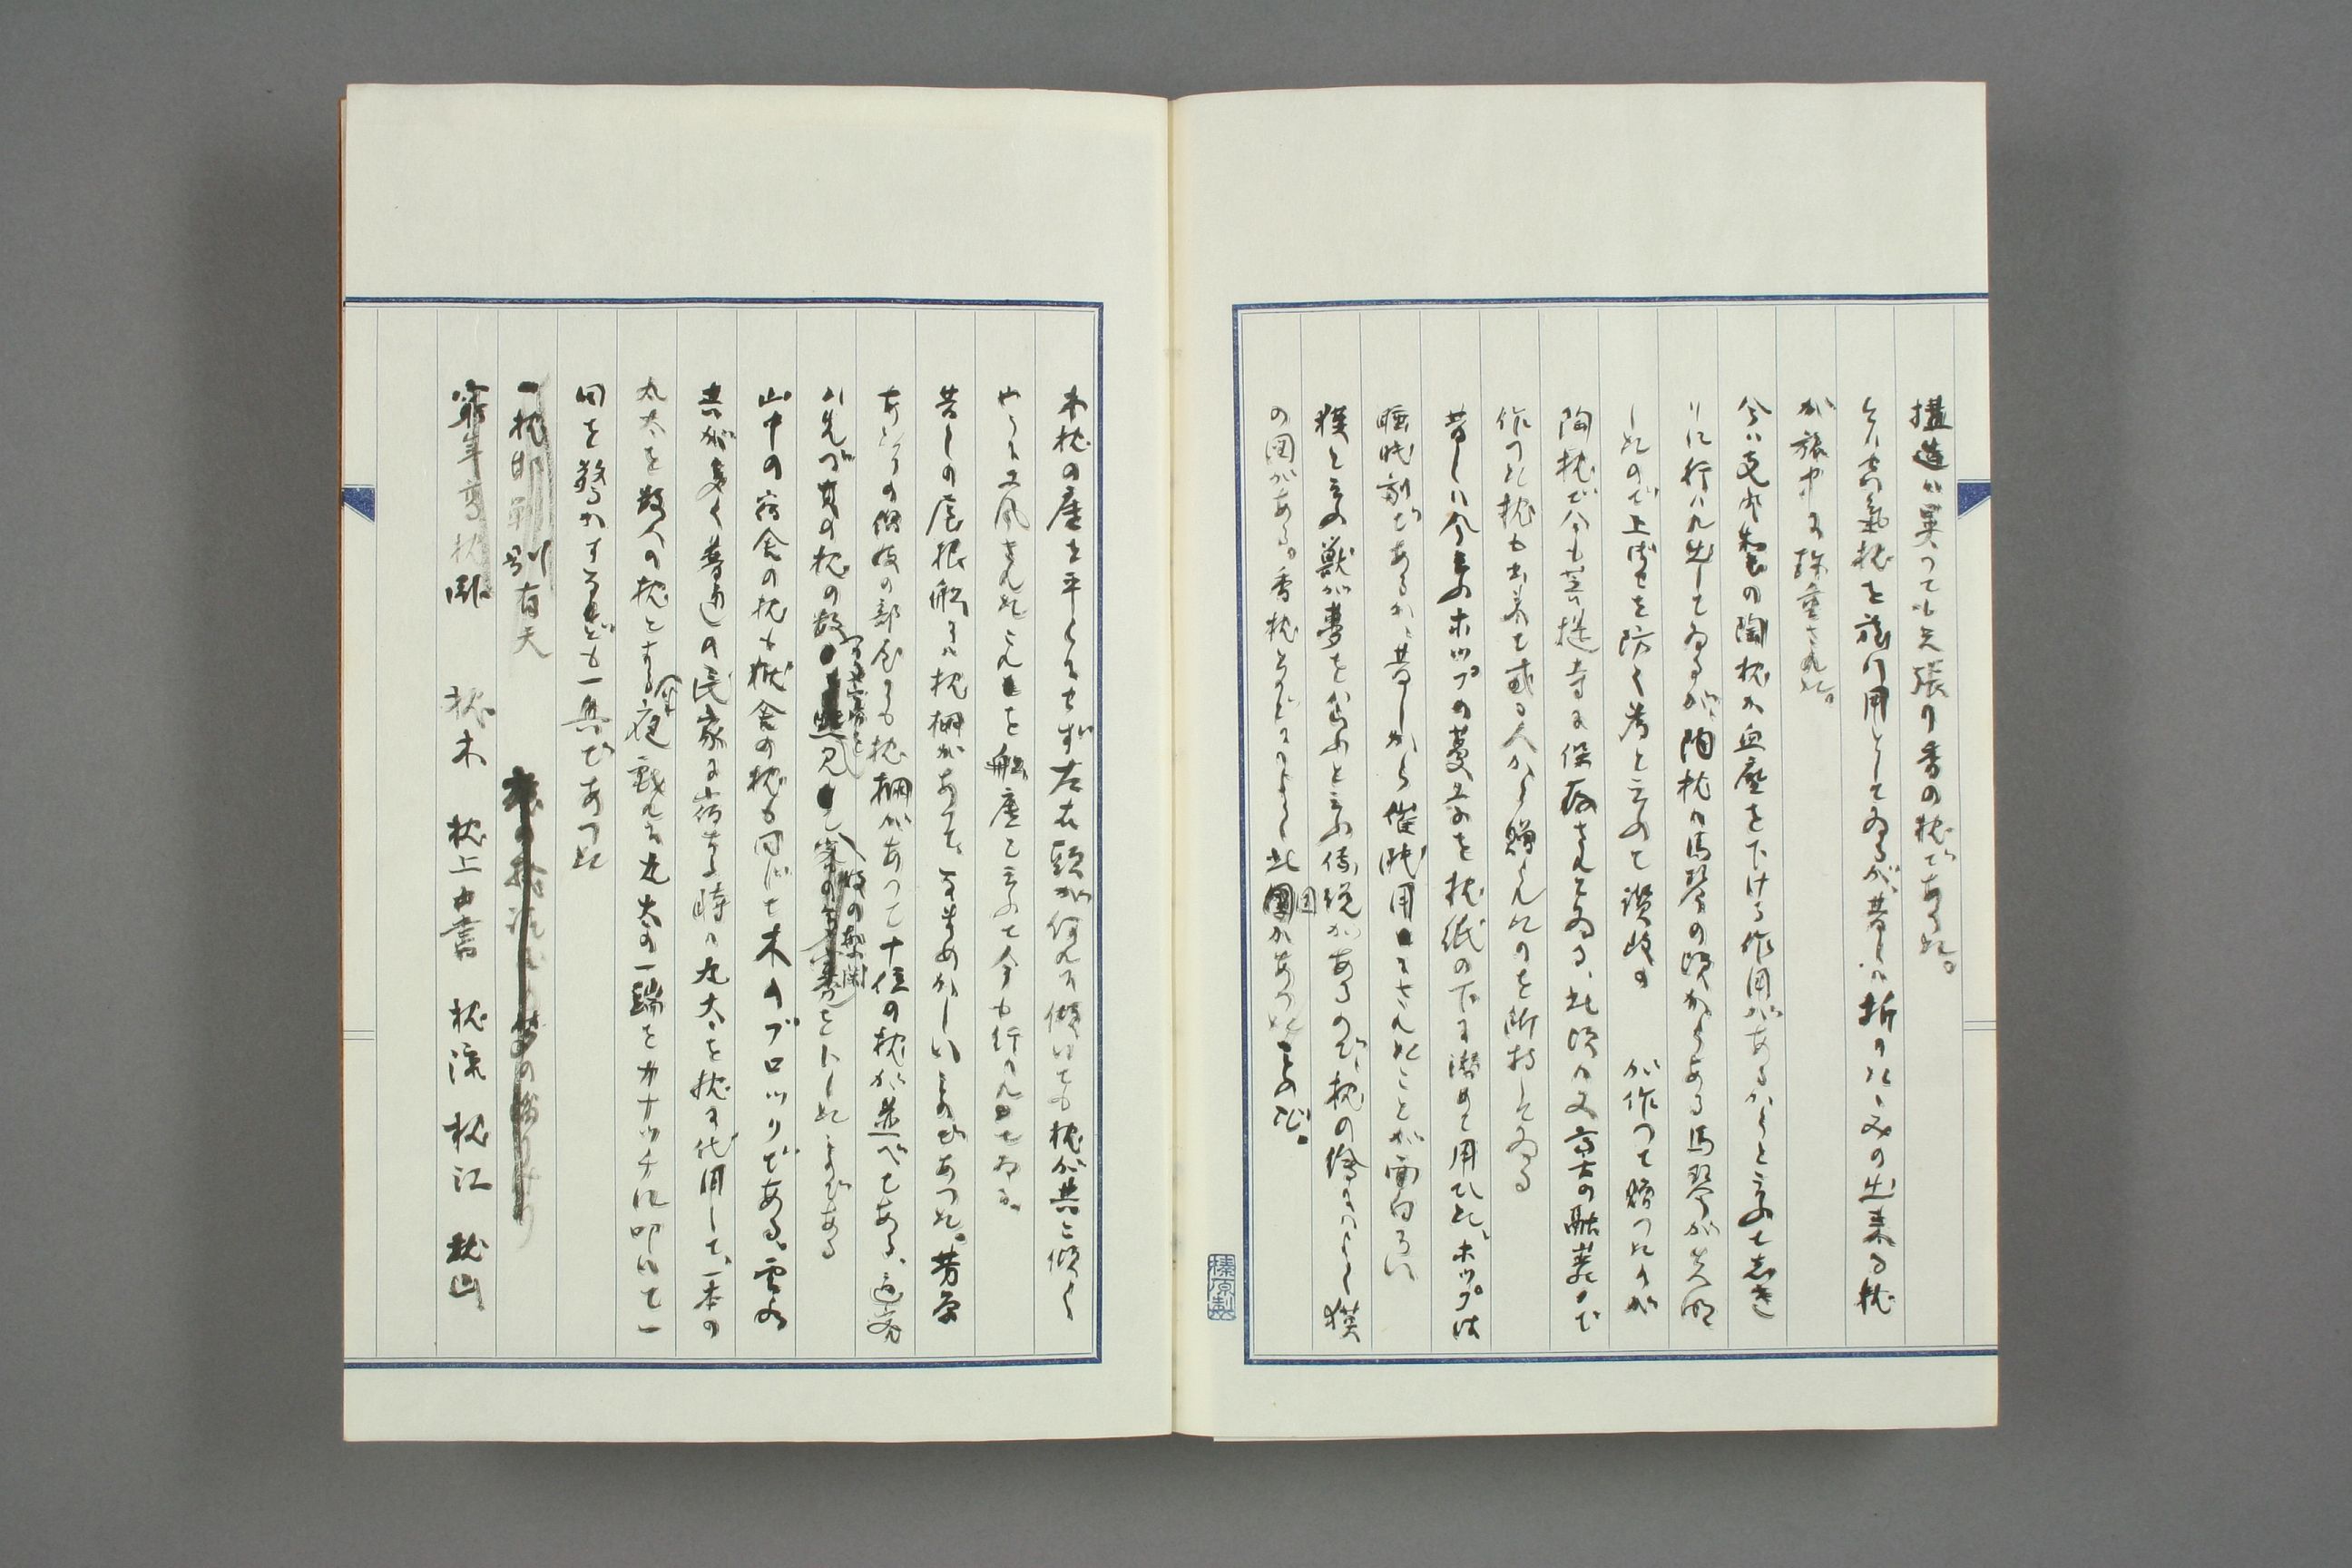 構造は異つても矢張り香の枕であつた。
今は空氣枕を旅行用としてゐるが、昔しは折りたゝみの出来る枕
が旅中に珍重された。
今は支那製の陶枕が血壓を下げる作用があるからと云ふてしき
りに行はれ出してゐるが、陶枕は馬琴の頃からある馬琴が失明
したので上ばせを防ぐ考と云ふて讃岐の が作つて贈つたのが
陶枕で今も菩提寺に保存されてゐる、此頃は
作つた枕も出来て或る人から贈られたのを所持してゐる
昔しは今云ふホツプの蔓草を枕紙の下に潜めて用ひた、ホツプは
睡眠剤であるが、昔しから催眠用にされたことが面白ろい
獏と云ふ獣が夢を食ふと云ふ伝説があるので、枕の繪によく獏
の図がある。香枕などによく此図があつたもの
木枕の底を平らにせず左右頭が何れに傾いても枕が共に傾く
やうに工風されたこれを船底と云ふて今も行はれてゐる。
昔しの屋根船には枕棚があつて、なまめかしいものであつた。芳原
あたりの娼妓の部屋にも枕棚があつて十位の枕が並べてある、遊客
は先づ其の枕の数 を見て をトしたものである
山中の宿舎の枕も獄舎の枕も同じで木のブロツクである。雪の
共が多く普通の民家に宿する時は丸太を枕に代用して、一本の
丸太を数人の枕とする夜 戯れに丸太の一端をカナツチに叩いて一
同を驚かすなども一興であつた
一枕邯鄲別有天
窮年高枕臥 枕木 枕上書 枕流 枕江 枕山
榛原製